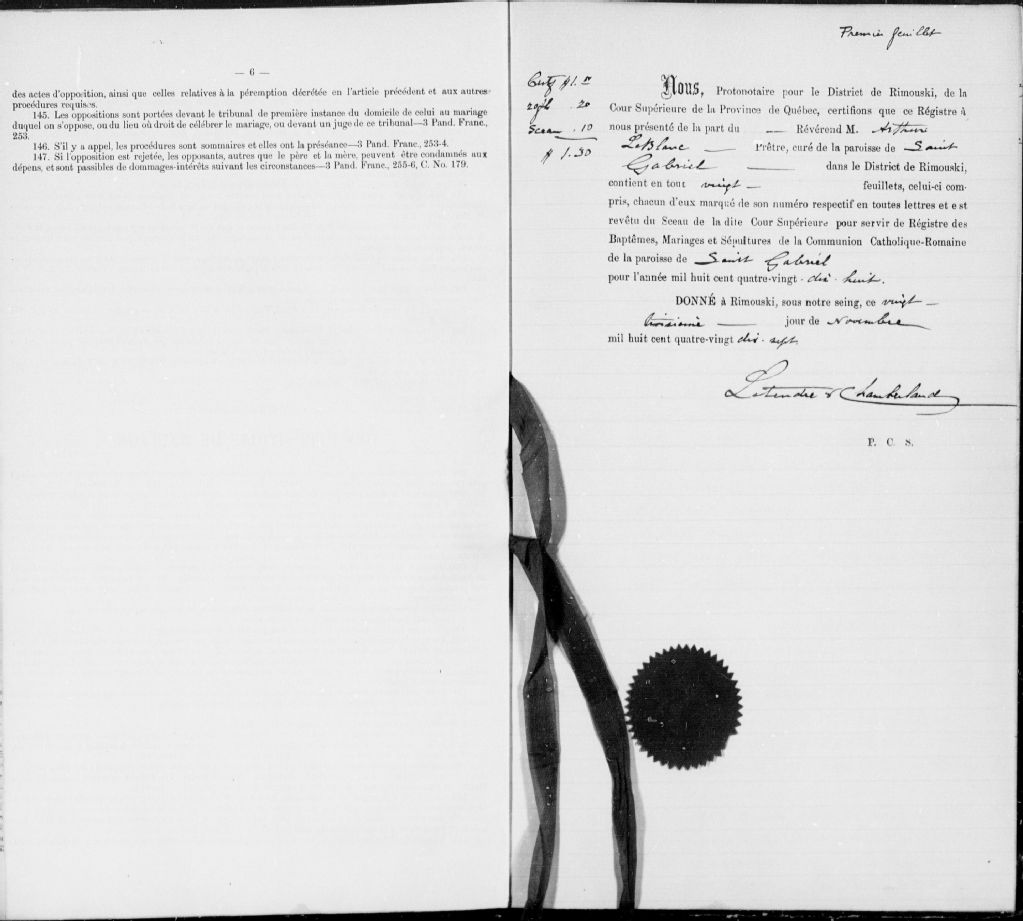 — 6 —
des actes d'opposition, ainsi que celles relatives à la péremption décrétée en l'article précédent et aux autres
procédures requises.
145. Les oppositions sont portées devant le tribunal de première instance du domicile de celui au mariage
duquel on s'oppose, ou du lieu où droit de célébrer le mariage, ou devant un juge de ce tribunal—3 Pand. Franc.,
253.
146. S'il y a appel, les procédures sont sommaires et elles ont la préséance—3 Pand. Franc., 253-4.
147. Si l'opposition est rejetée, les opposants, autres que le père et la mère, peuvent être condamnés aux
dépens, et sont passibles de dommages-intérêts suivant les circonstances—3 Pand. Franc., 255-6, C. No. 179.
Premier feuillet
$1.
.20
Sceau .10
$ 1.30
Nous, Protonotaire pour le District de Rimouski, de la
Cour Supérieure de la Province de Québec, certifions que ce Régistre à
nous présenté de la part du — Révérend M. Arthur
LeBlanc — Prêtre, curé de la paroisse de Saint
Gabriel — dans le District de Rimouski,
contient en tout vingt — feuillets, celui-ci com-
pris, chacun d'eux marqué de son numéro respectif en toutes lettres et est
revêtu du Sceau de la dite Cour Supérieure pour servir de Régistre des
Baptêmes, Mariages et Sépultures de la Communion Catholique-Romaine
de la paroisse de Saint Gabriel
pour l'année mil huit cent quatre-vingt-dix-huit.
DONNÉ à Rimouski, sous notre seing, ce vingt —
troisième — jour de Novembre
mil huit cent quatre-vingt dix-sept
Letendre & Chamberland
P. C. S.